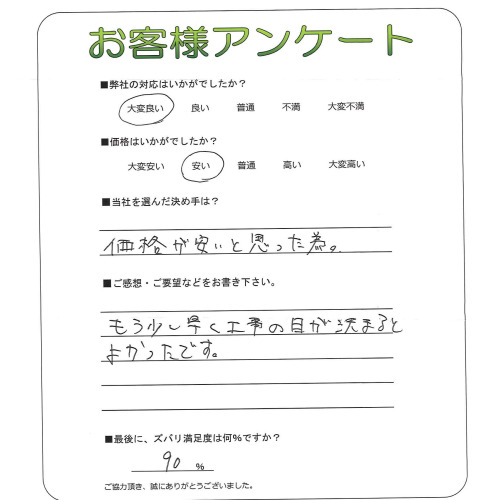 お客様アンケート
■弊社の対応はいかがでしたか?
大変良い 良い 普通 不満 大変不満
■価格はいかがでしたか?
大変安い 安い 普通 高い 大変高い
■当社を選んだ決め手は?
価格が安いと思った為。
■ご感想・ご要望などをお書き下さい。
もう少し早く工事の日が決まると
よかったです。
■最後に、ズバリ満足度は何%ですか?
90 %
ご協力頂き、誠にありがとうございました。